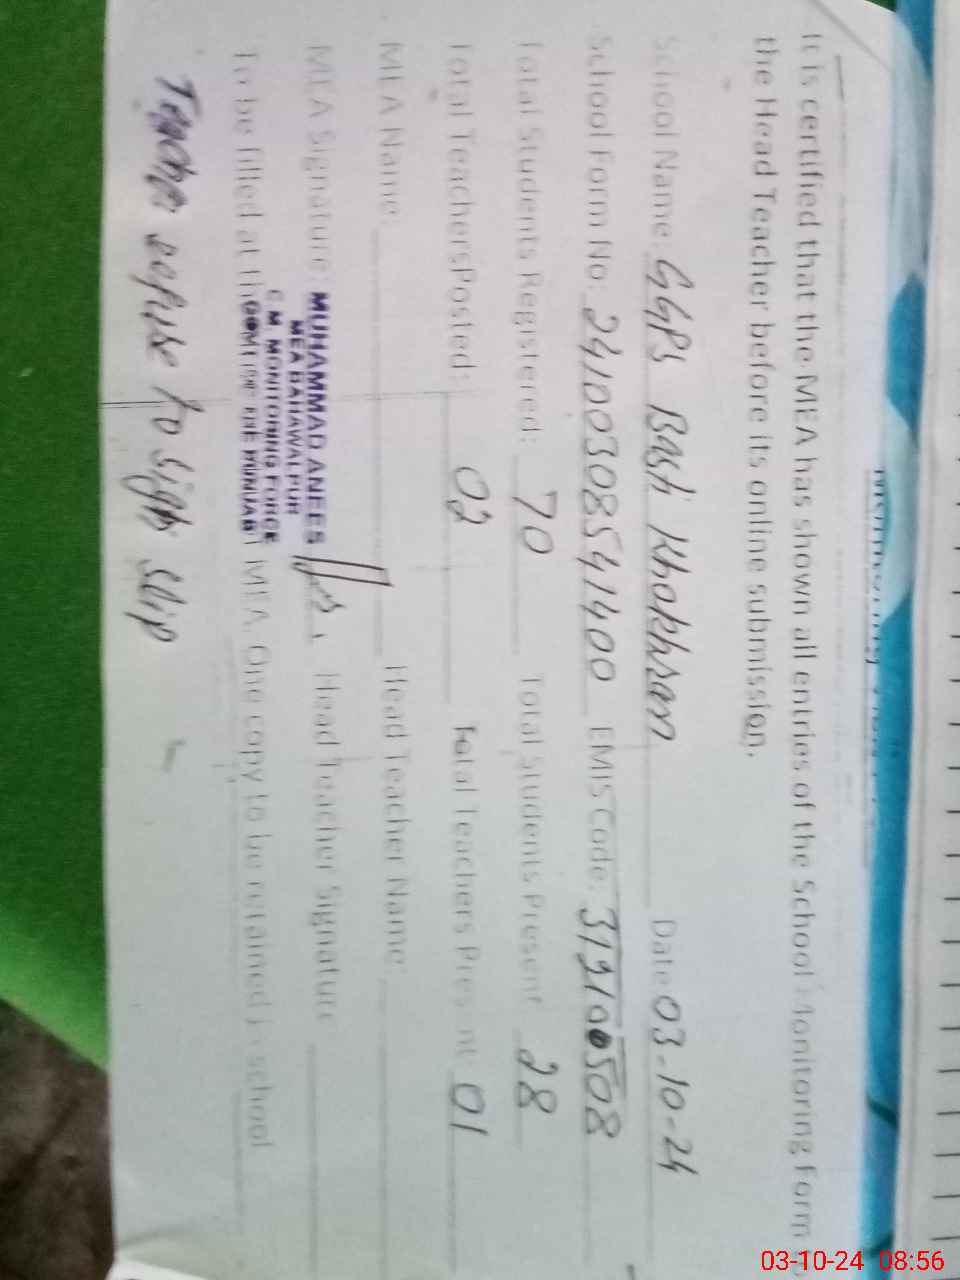 It is certified that the MEA has shown all entries of the School Monitoring Form
the Head Teacher before its online submission.
School Name: GGPS Basti Khokhran Date 03-10-24
School Form No: 24100308541400 EMIS Code:
Total Students Registered: 70 Total Students Present 28
Total TeachersPosted: 02 Total Teachers Present 01
MEA Name Head Teacher Name:
MEA Signature Head Teacher Signature
MUHAMMAD ANEES
MEA BAHAWALPUR
C.M. MONITORING FORCE
To be filled at the MEA. One copy to be retained in school
Teacher refuse to sign slip
03-10-24 08:56